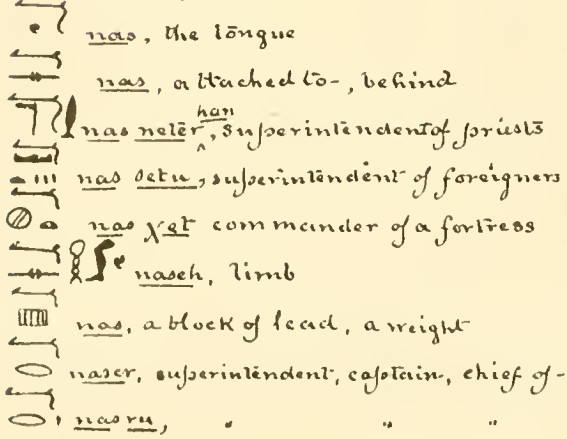 nas, the tongue
nas, attached to-, behind
nas neter han, Superintendent of priests
nas setu, superintendent of foreigners
nas χet commander of a fortress
naseh, limb
nas, a block of lead, a weight
naser, superintendent, captain, chief of-
nasru, " " "